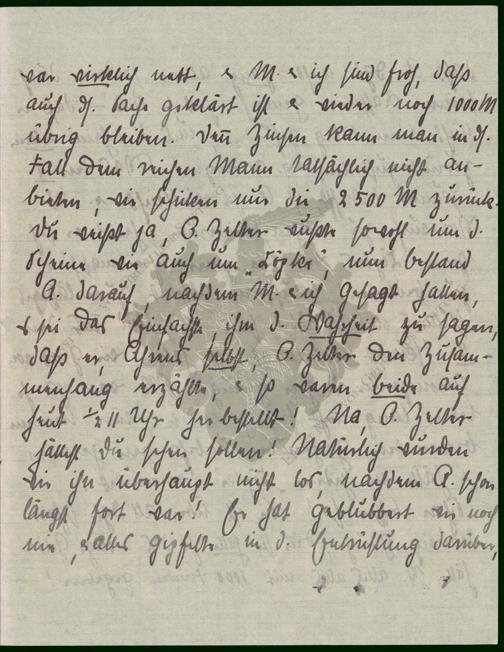 war wirklich nett, & M. & ich sind froh, daß
auch d. Sache geklärt ist & wieder noch 1000 M
übrig bleiben. Denn Zinsen kann man in d.
Fall dem reichen Mann tatsächlich nicht an-
bieten, wir schicken nur die 2500 M zurück.
Du weißt ja, O. Zelter wußte sowohl um d.
Scheine wie auch um „Köpke", nun bestand
A. darauf, nachdem M. & ich gesagt hatten,
es sei das Einfachste ihm d. Wahrheit zu sagen,
daß er, Ahrens selbst, O. Zelter den Zusam-
menhang erzählte, & so waren beide auf
heut ½ 11 Uhr herbestellt! Na, O. Zelter
hättest Du sehen sollen! Natürlich wurden
wir ihn überhaupt nicht los, nachdem A. schon
längst fort war! Er hat geblubbert wie noch
nie, & alles gipfelte in d. Entrüstung darüber,